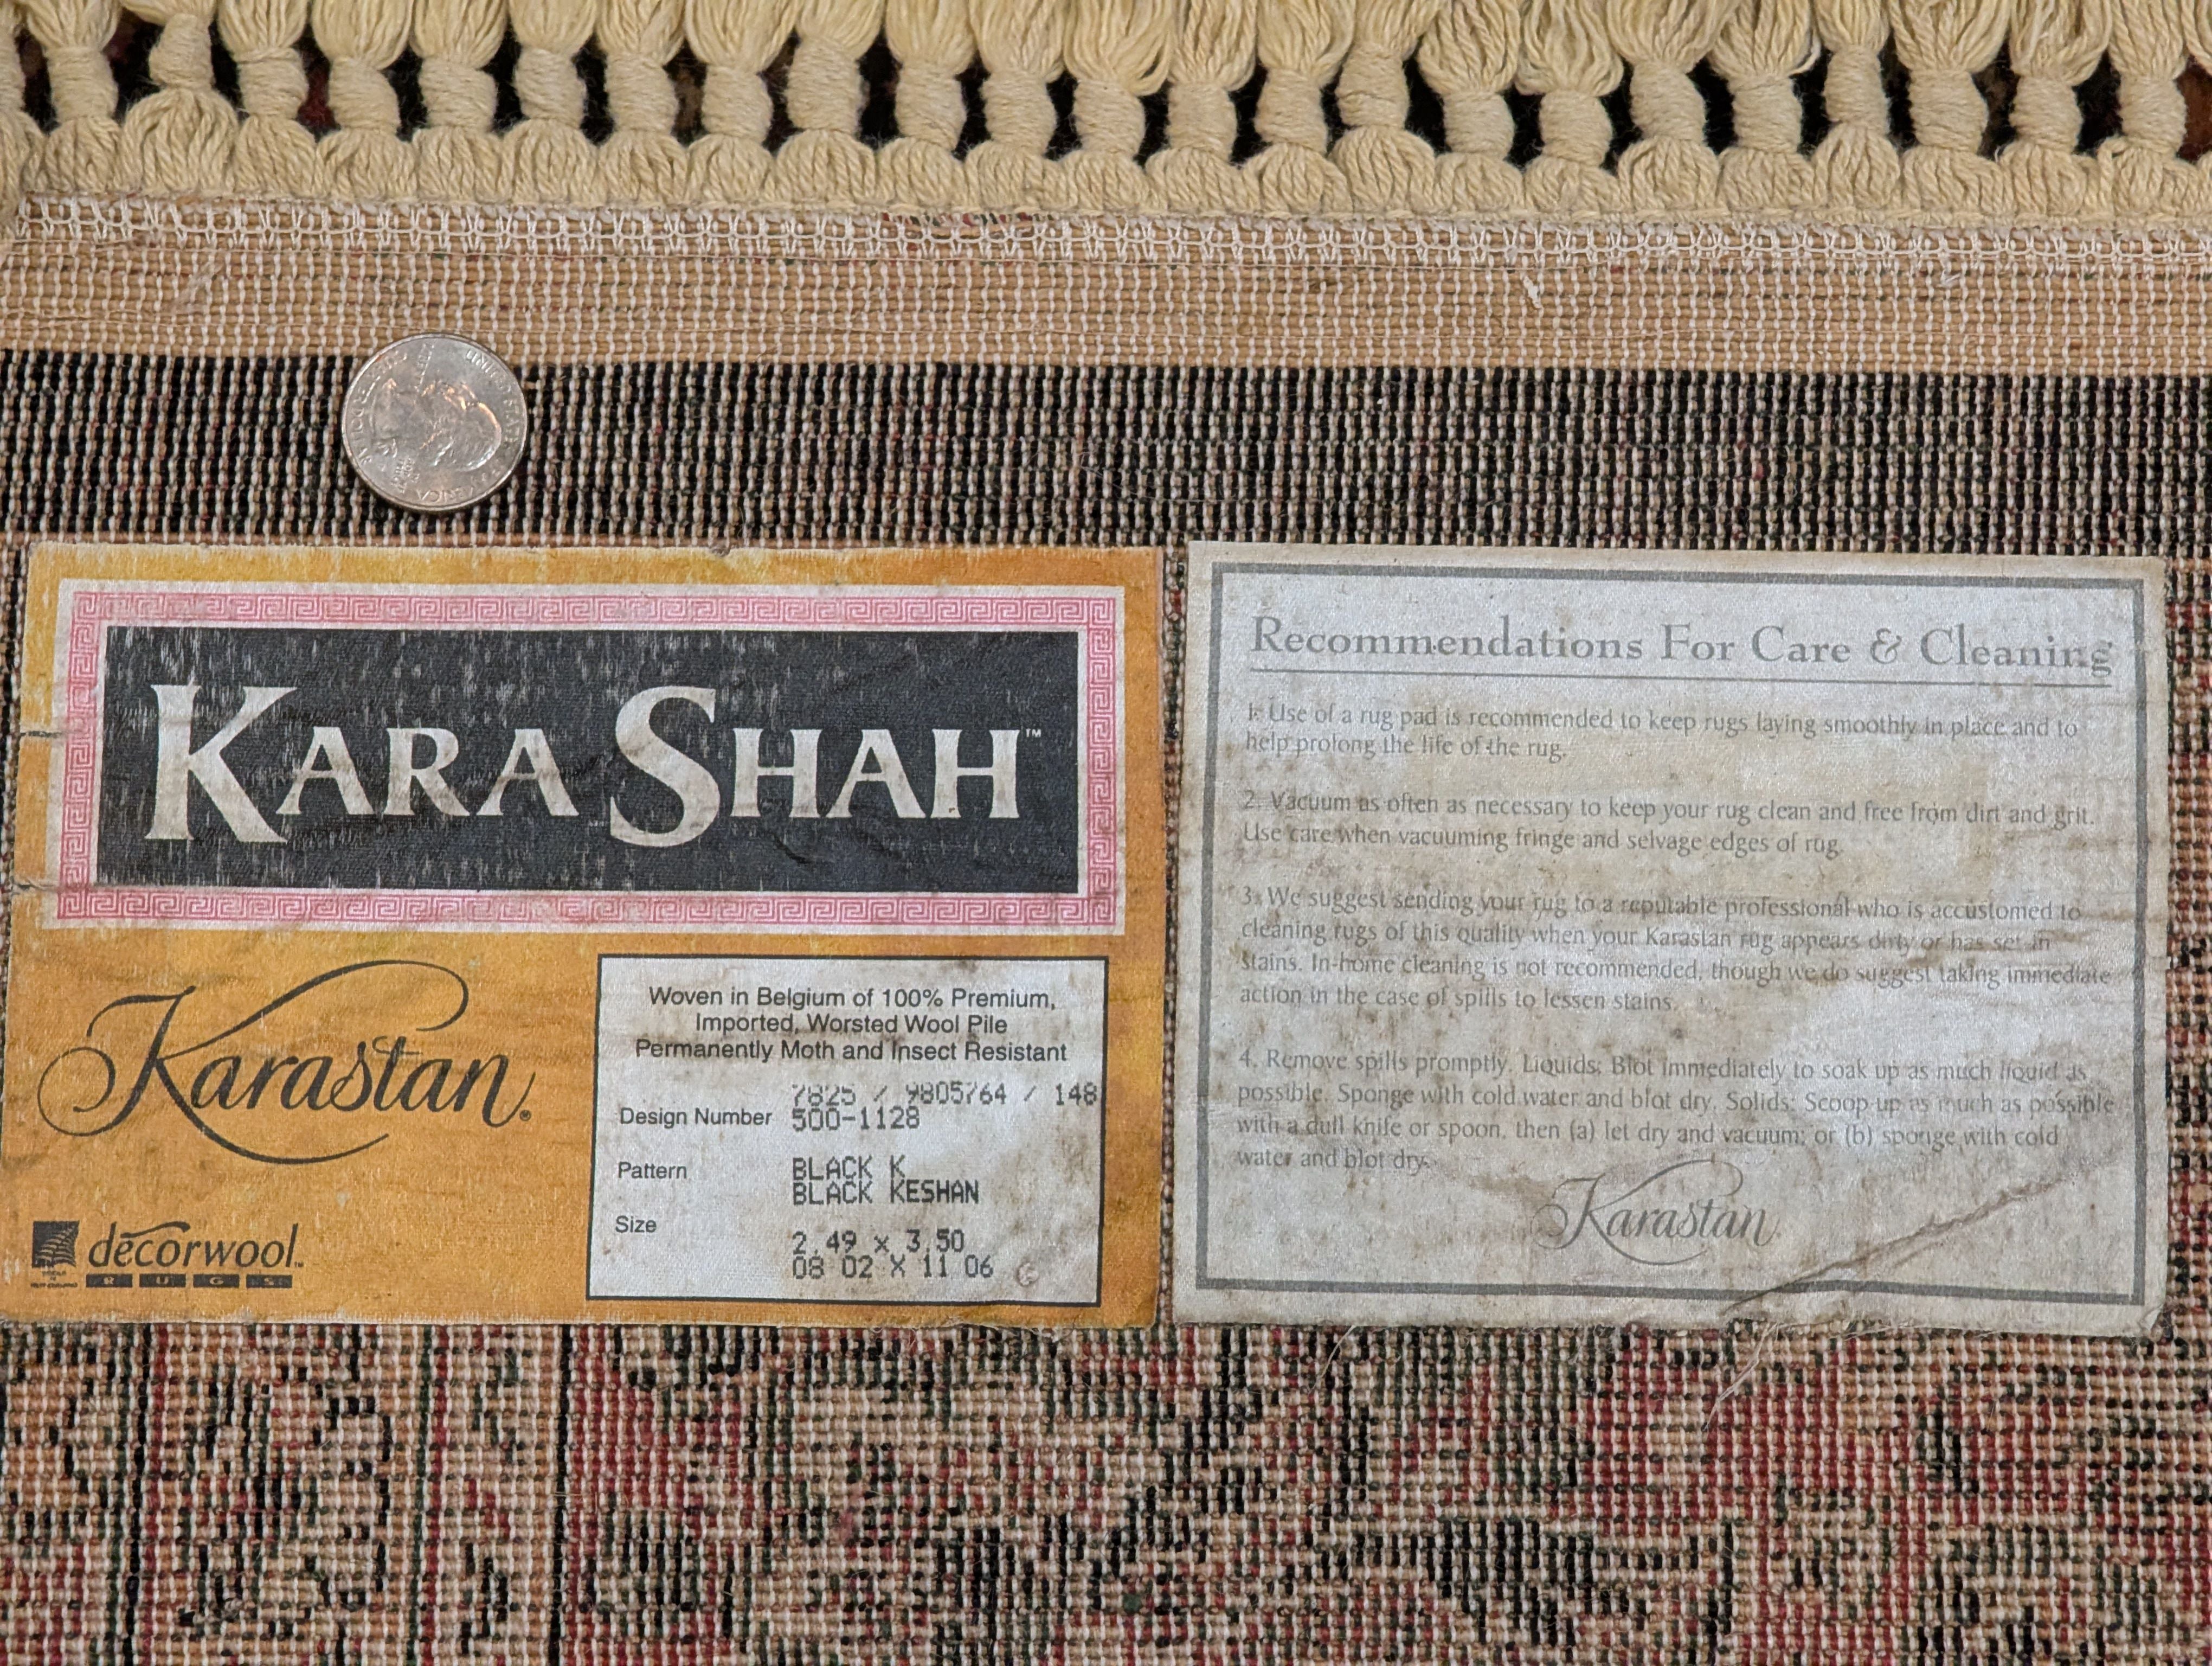 KARA SHAH™
Karastan®
Woven in Belgium of 100% Premium,
Imported, Worsted Wool Pile
Permanently Moth and Insect Resistant
7825 / 9805764 / 148
Design Number 500-1128
Pattern BLACK K
BLACK KESHAN
Size
2.49 x 3.50
08 02 X 11 06
décorwool™
RUGS
Recommendations For Care & Cleaning
1. Use of a rug pad is recommended to keep rugs laying smoothly in place and to
help prolong the life of the rug.
2. Vacuum as often as necessary to keep your rug clean and free from dirt and grit.
Use care when vacuuming fringe and selvage edges of rug.
3. We suggest sending your rug to a reputable professional who is accustomed to
cleaning rugs of this quality when your Karastan rug appears dirty or has set in
stains. In-home cleaning is not recommended, though we do suggest taking immediate
action in the case of spills to lessen stains.
4. Remove spills promptly. Liquids: Blot immediately to soak up as much liquid as
possible. Sponge with cold water and blot dry. Solids: Scoop up as much as possible
with a dull knife or spoon, then (a) let dry and vacuum; or (b) sponge with cold
water and blot dry.
Karastan